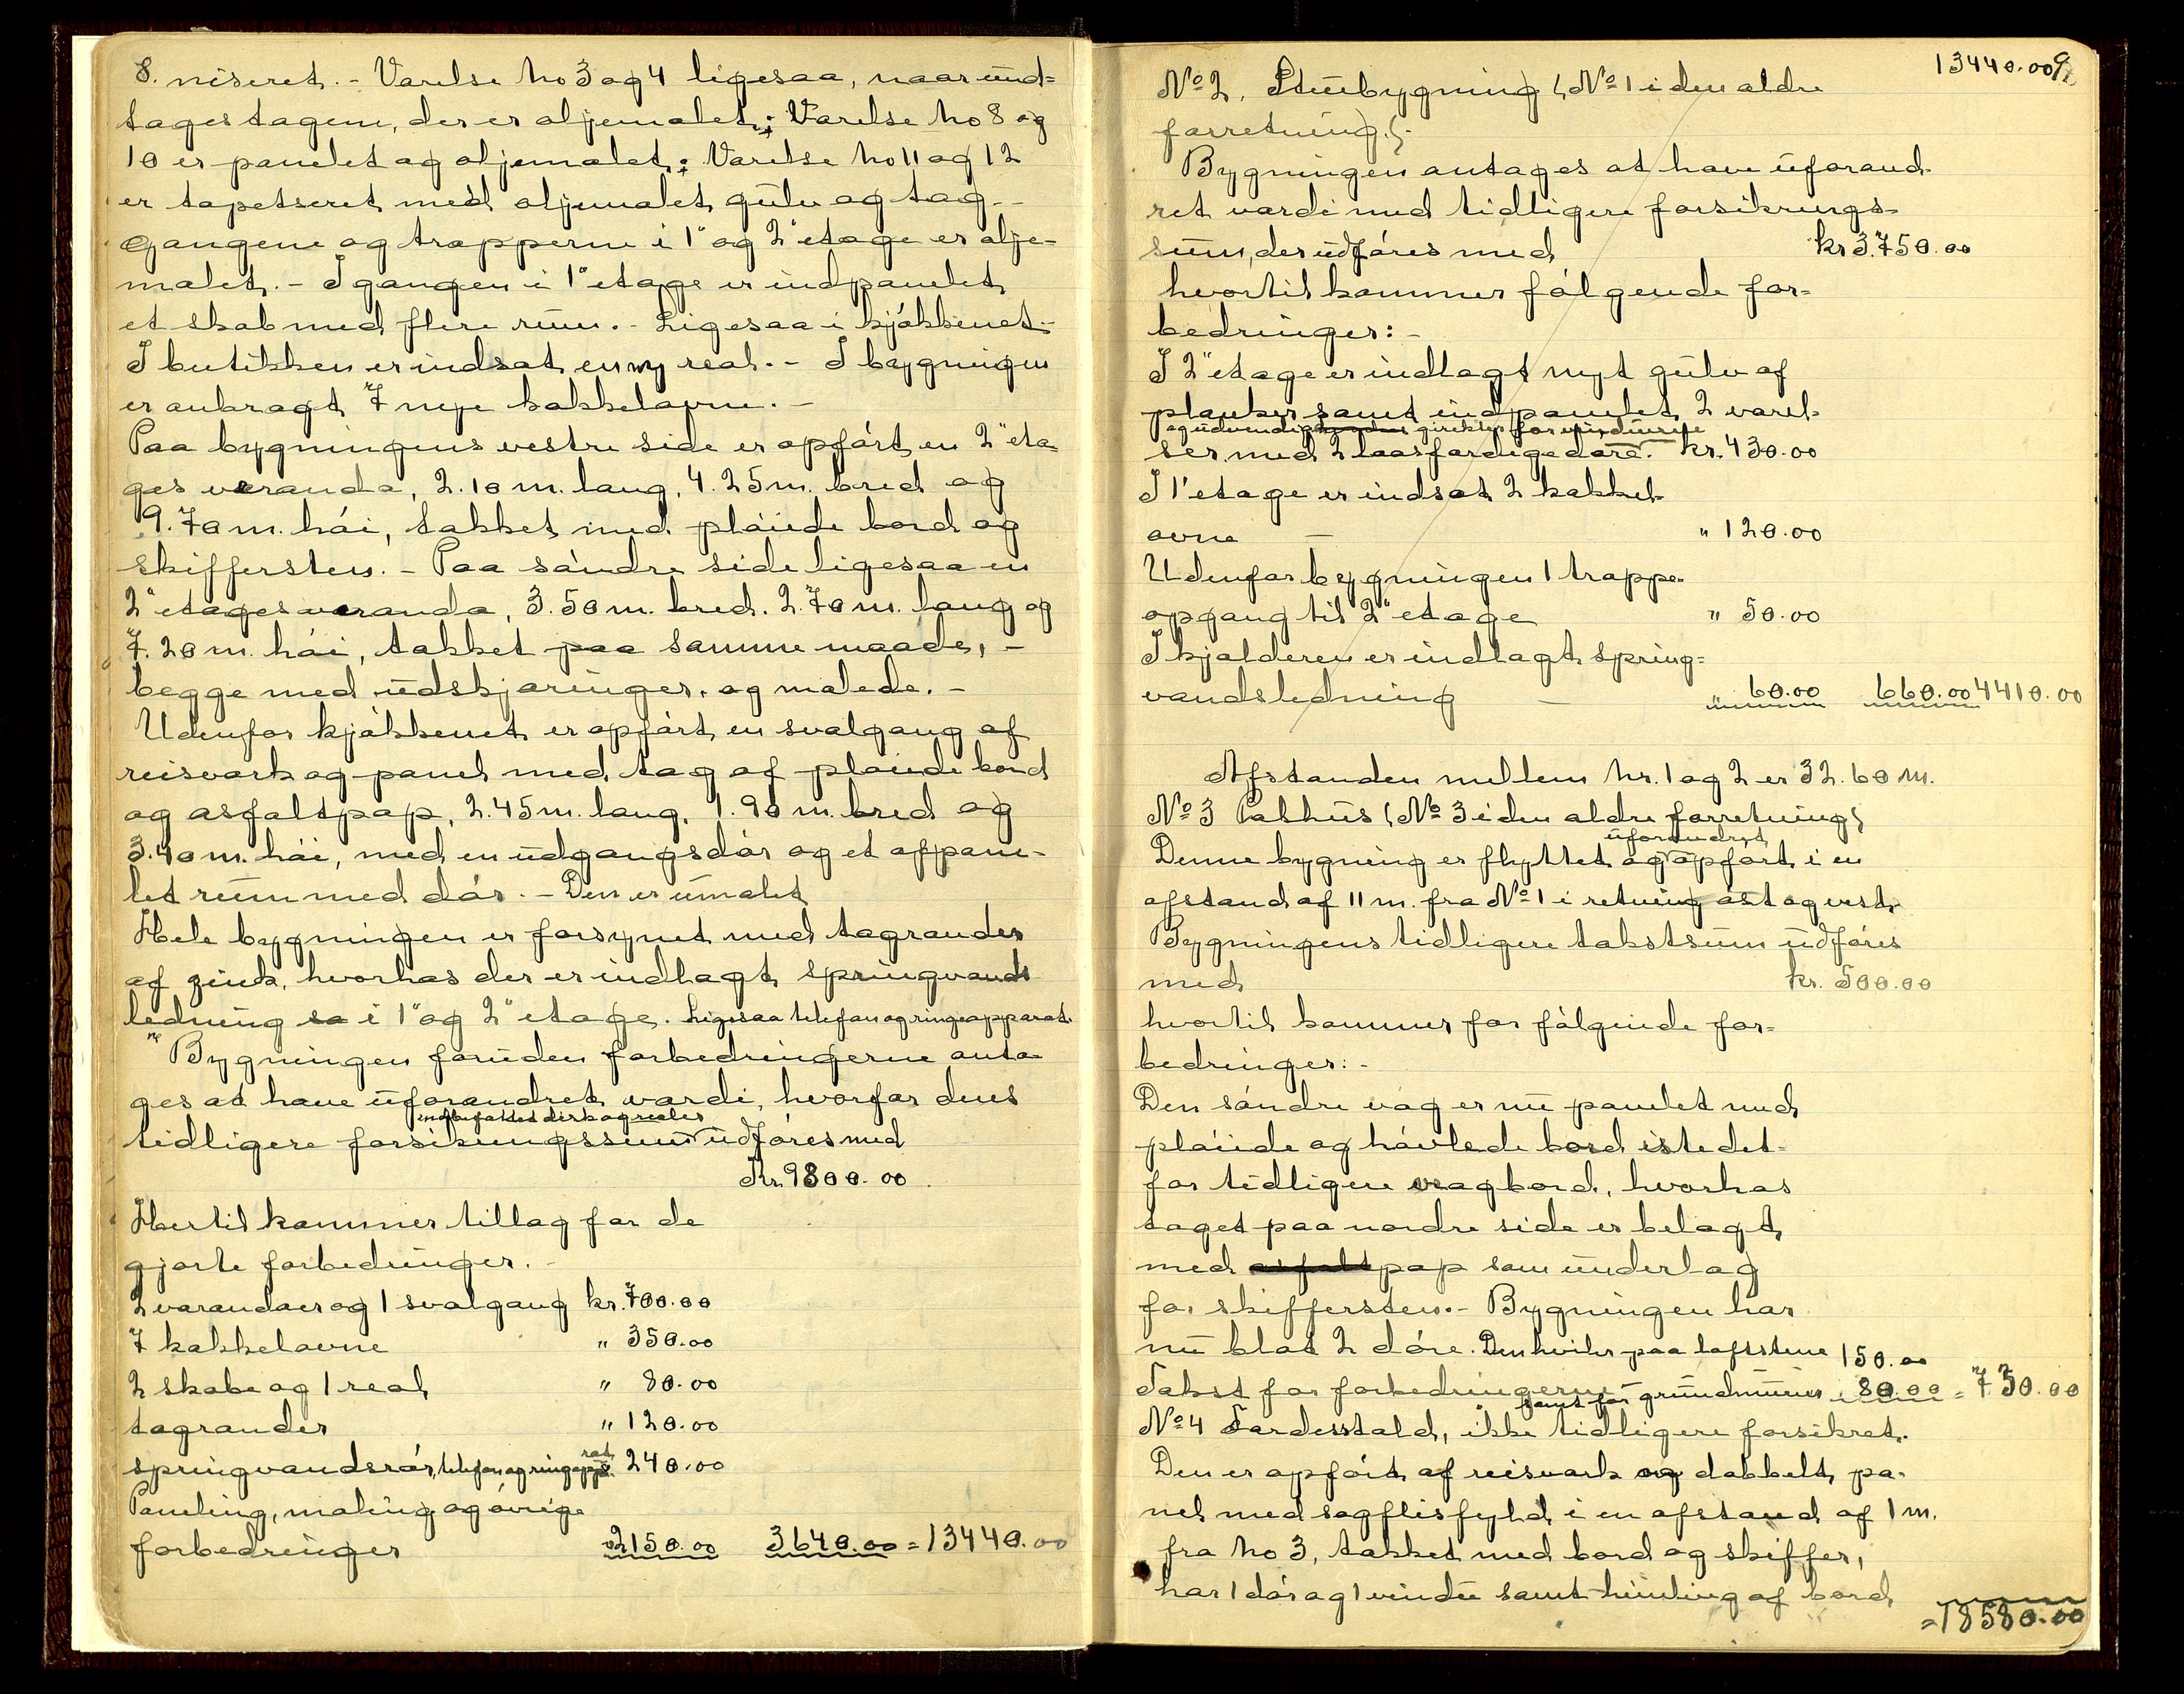 8. niseret. - Værelse No 3 og 4 ligesaa, naar und=
tages tagene, der er oljemalet; Værelse No 8 og
10 er panelet og oljemalet; Værelse No 11 og 12
er tapetseret med oljemalet gulv og tag. -
Gangene og trapperne i 1" og 2" etage er olje=
malet. - I gangen i 1" etage er indpanelet
et skab med flere rum. - Ligesaa i kjøkkenet. -
I butikken er indsat en ny reol. - I bygningen
er anbragt 7 nye kakkelovne. -
Paa bygningens vestre side er opført en 2" eta
ges veranda, 2.10 m. lang, 4.25 m. bred og
9.70 m. høi, tækket med pløiede bord og
skiffersten. - Paa søndre side ligesaa en
2" etages veranda, 3.50 m. bred. 2.70 m. lang og
7.20 m. høi, tækket paa samme maade, -
begge med udskjæringer, og malede. -
Udenfor kjøkkenet er opført en svalgang af
reisværk og panel med tag af pløiede bord
og asfaltpap, 2.45 m. lang, 1.90 m. bred og
3.40 m. høi, med en udgangsdør og et afpane-
let rum med dør. - Den er umalet
Hele bygningen er forsynet med tagrender
af zink, hvorhos der er indlagt springvands
ledning i 1" og 2" etage. Ligesaa telefon og ringeapparat.
Bygningen foruden forbedringerne anta-
ges at have uforandret værdi, hvorfor dens
indbefattet disk og reoler
tidligere forsikringssum udføres med
Kr. 9800.00
Hertil kommer tillæg for de
gjorte forbedringer. -
2 varandaer og 1 svalgang kr. 700.00
7 kakkelovne " 350.00
2 skabe og 1 reol " 80.00
tagrender " 120.00
springvandsrør, telefon og ringeappa rat " 240.00
Paneling, maling og øvrige
forbedringer " 2150.00 3640.00 = 13440.00
13440.00 9.
No 2. Stuebygning (No 1 i den ældre
forretning). -
Bygningen antages at have uforand-
ret værdi med tidligere forsikrings-
sum, der udføres med kr 3.750.00
hvortil kommer følgende for=
bedringer: -
I 2" etage er indlagt nyt gulv af
planker samt indpanelet 2 værel-
og udvendig girekter for vinduerne
ser med 2 laasfærdige døre. kr. 430.00
I 1" etage er indsat 2 kakkel-
ovne - " 120.00
Udenfor bygningen 1 trappe-
opgang til 2" etage " 50.00
I kjælderen er indlagt spring=
vandsledning - " 60.00 660.00 4410.00
Afstanden mellem Nr. 1 og 2 er 32.60 m.
No 3 Pakhus (No 3 i den ældre forretning)
uforandret
Denne bygning er flyttet og opført i en
afstand af 11 m. fra No 1 i retning øst og vest.
Bygningens tidligere takstsum udføres
med kr. 500.00
hvortil kommer for følgende for=
bedringer: -
Den søndre væg er nu panelet med
pløiede og høvlede bord istedet=
for tidligere vragbord, hvorhos
taget paa nordre side er belagt
med asfaltpap som underlag
for skiffersten. - Bygningen har
nu blot 2 døre. Den hviler paaløfstene 150.00
Takst for forbedringerne samt for grundmuren 80.00 = 730.00
No 4 Færdesstald, ikke tidligere forsikret.
Den er opført af reisværk og dobbelt pa-
nel med sagflisfyld i en afstand af 1 m.
fra No 3, tækket med bord og skiffer,
har 1 dør og 1 vindu samt himling af bord
= 18580.00